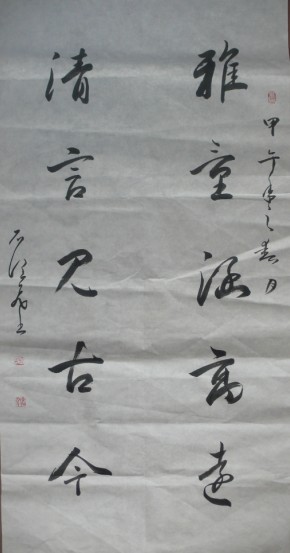 甲午年之春月
雅量涵高远
清言见古今